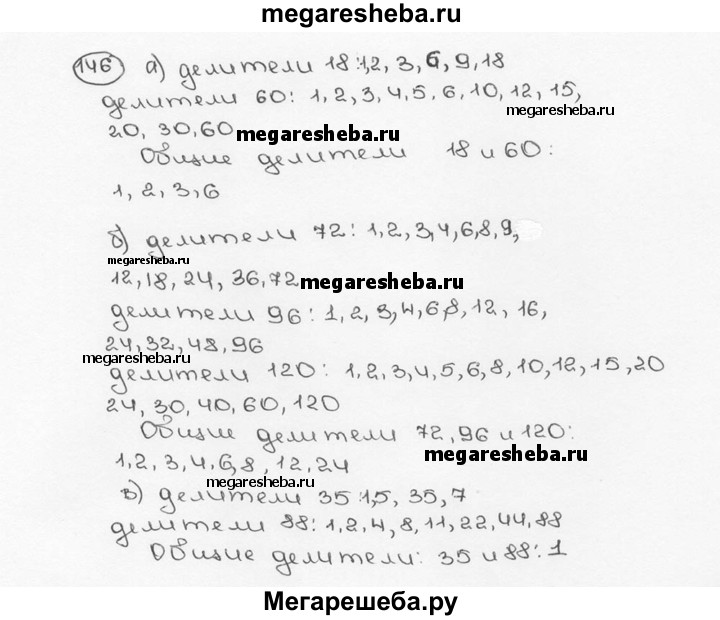 megaresheba.ru
146 а) делители 18:1,2, 3, 6, 9, 18
делители 60: 1, 2, 3, 4, 5, 6, 10, 12, 15,
megaresheba.ru
20, 30, 60 megaresheba.ru
Общие делители 18 и 60:
1, 2, 3, 6
б) делители 72: 1, 2, 3, 4, 6, 8, 9,
megaresheba.ru
12, 18, 24, 36, 72 megaresheba.ru
делители 96: 1, 2, 3, 4, 6, 8, 12, 16,
24, 32, 48, 96
megaresheba.ru
делители 120: 1, 2, 3, 4, 5, 6, 8, 10, 12, 15, 20
24, 30, 40, 60, 120
Общие делители 72, 96 и 120:
megaresheba.ru
1, 2, 3, 4, 6, 8, 12, 24
megaresheba.ru
в) делители 35:1,5, 35, 7
делители 88: 1, 2, 4, 8, 11, 22, 44, 88
Общие делители: 35 и 88: 1
Мегарешеба.ру